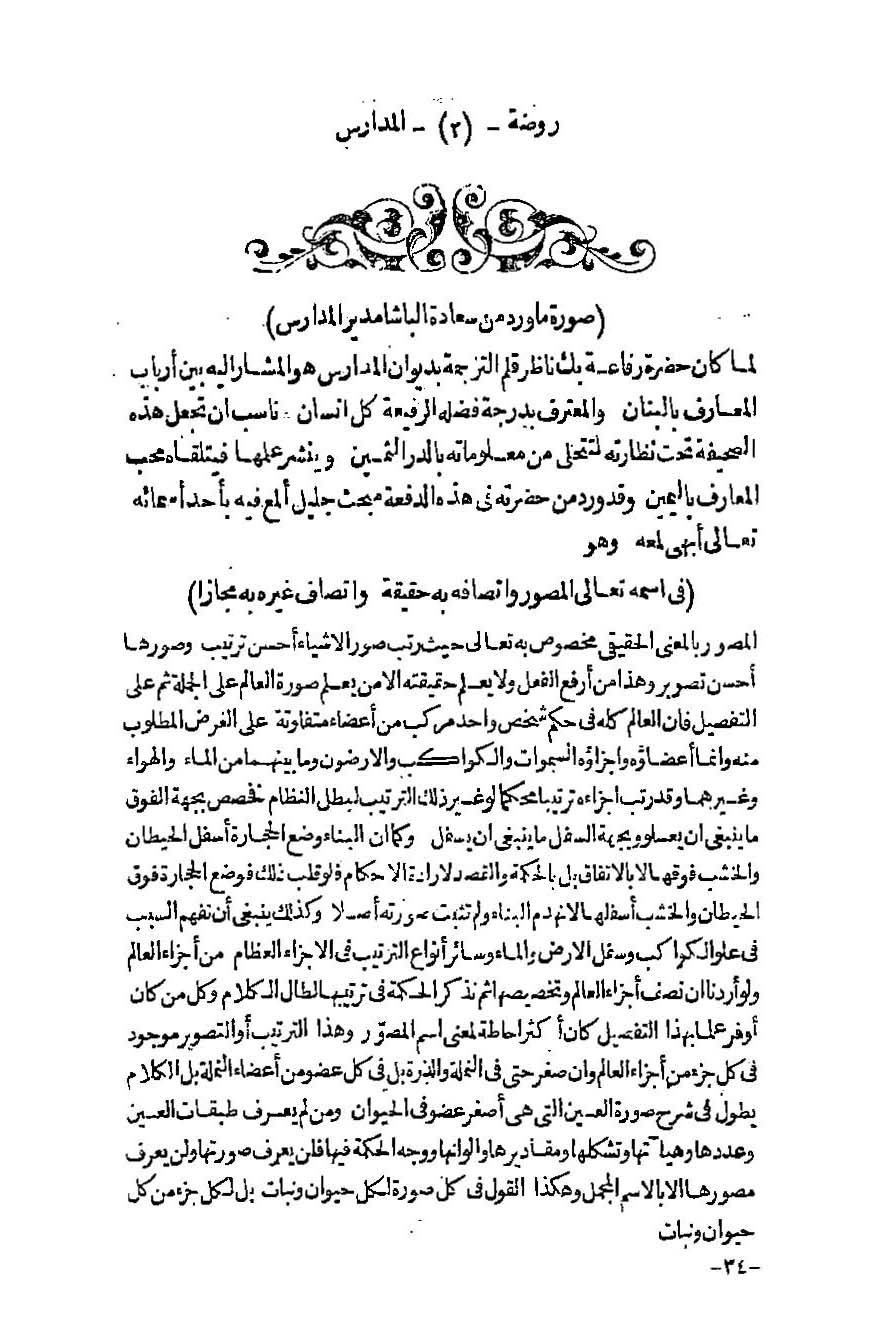 روضة - (٢) - المدارس
(صورة ماورد من سعادة الباشا مدير المدارس)
لما كان حضرة رفاعة بك ناظر قلم الترجمة بديوان المدارس هو المشار اليه بين أرباب
المعارف بالبنان والمعترف بدرجة فضله الرفيعة كل انسان ناسب ان تجعل هذه
الصحيفة تحت نظارته لتتحلى من معلوماته بالدر الثمين وينشر علمها فيتلقاه محب
المعارف باليمين وقد ورد من حضرته فى هذه الدفعة مبحث جليل ألمع فيه بأحد أسمائه
تعالى أبهى لمعه وهو
(فى اسمه تعالى المصور واتصافه به حقيقة واتصاف غيره به مجازا)
المصور بالمعنى الحقيقى مخصوص به تعالى حيث رتب صور الاشياء أحسن ترتيب وصورها
أحسن تصوير وهذا من أرفع الفعل ولا يعلم حقيقته الا من يعلم صورة العالم على الجملة ثم على
التفصيل فان العالم كله فى حكم شخص واحد مركب من أعضاء متفاوتة على الغرض المطلوب
منه وانما أعضاؤه واجزاؤه السموات والكواكب والارضون وما بينهما من الماء والهواء
وغيرهما وقد رتب اجزاءه ترتيبا محكما لو غير ذلك الترتيب لبطل النظام فخصص بجهة الفوق
ما ينبغى ان يعلو وبجهة السفل ما ينبغى ان يسفل وكما ان البناء وضع الحجارة أسفل الحيطان
والخشب فوقها لا بالاتفاق بل بالحكمة والقصد لارادة الاحكام فلو قلب ذلك فوضع الحجارة فوق
الحيطان والخشب أسفلها لانهدم البناء ولم تثبت صورته أصلا وكذلك ينبغى أن تفهم السبب
فى علو الكواكب وسفل الارض والماء وسائر أنواع الترتيب فى الاجزاء العظام من أجزاء العالم
ولو أردنا ان نصف أجزاء العالم ونخصيصها ثم نذكر الحكمة فى ترتيبها لطال الكلام وكل من كان
أوفر علما بهذا التفصيل كان أكثر احاطة لمعنى اسم المصوّر وهذا الترتيب أو التصوير موجود
فى كل جزء من أجزاء العالم وان صغر حتى فى النملة والذرة بل فى كل عضو من أعضاء النملة بل الكلام
يطول فى شرح صورة العين التى هى أصغر عضو فى الحيوان ومن لم يعرف طبقات العين
وعددها وهيآتها وتشكلها ومقاديرها والوانها ووجه الحكمة فيها فلن يعرف صورتها ولن يعرف
مصورها الا بالاسم المجمل وهكذا القول فى كل صورة لكل حيوان ونبات بل لكل جزء من كل
حيوان ونبات
-٣٤-